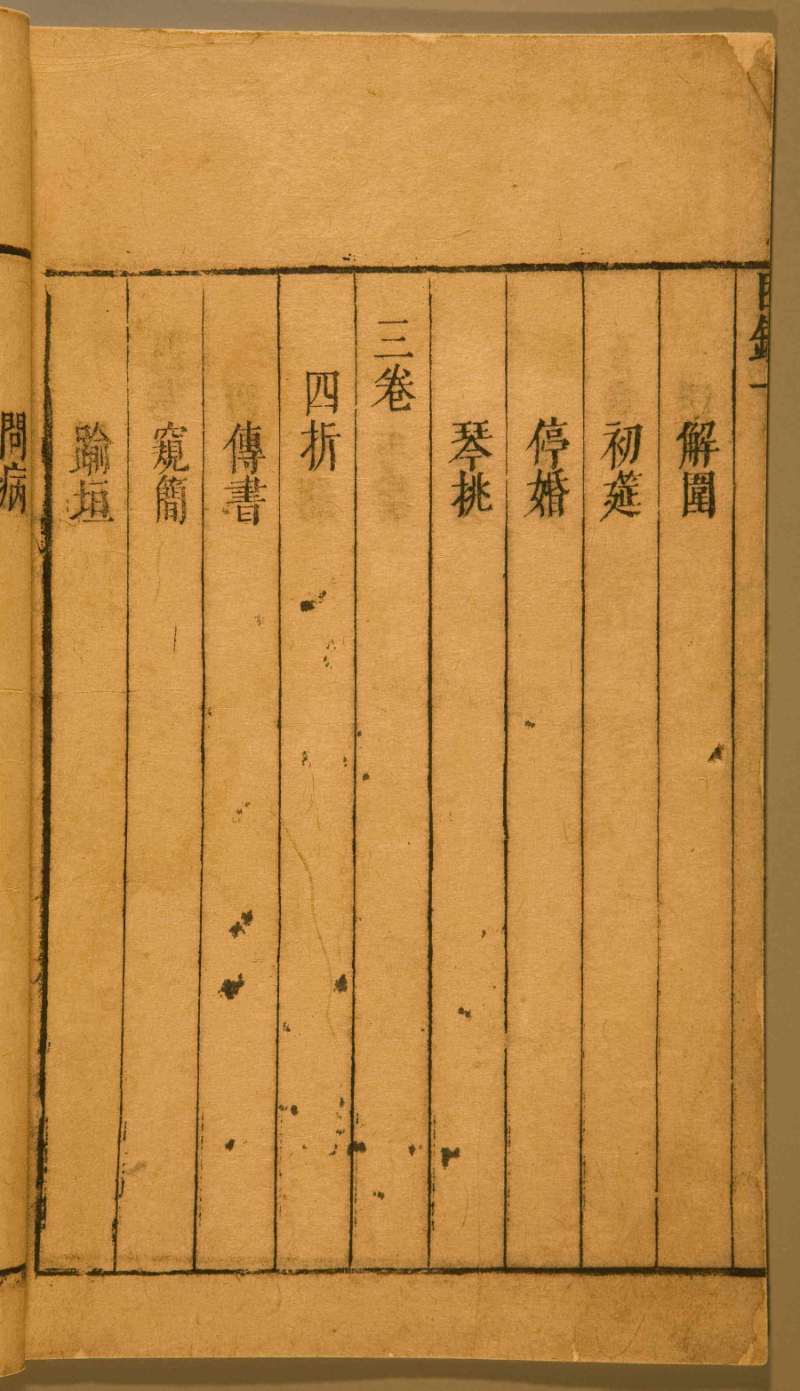 目錄一
解圍
初莚
停婚
琴挑
三卷
四折
傳書
窺簡
踰垣
問病